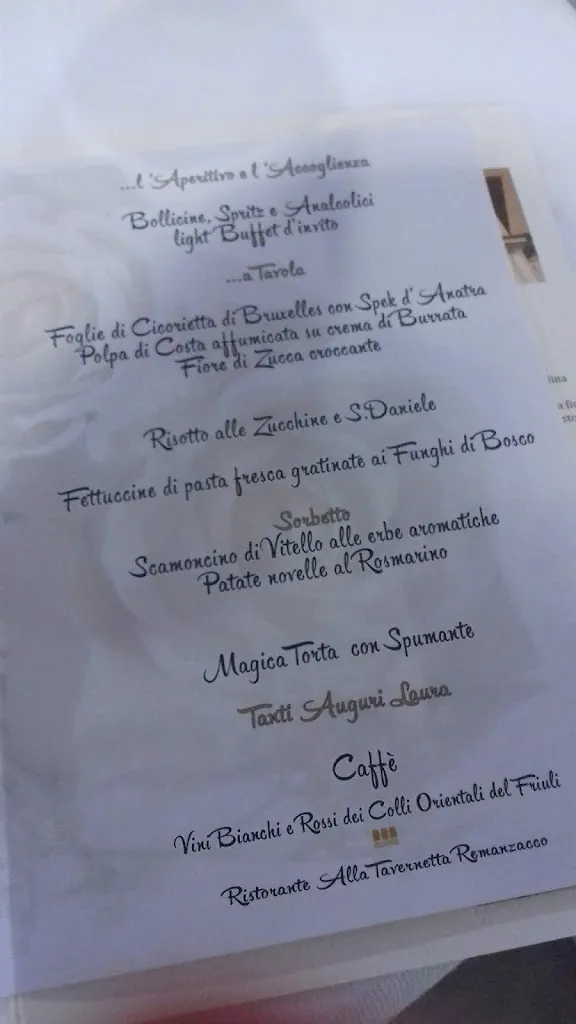 ...l'Aperitivo e l'Accoglienza
Bollicine, Spritz e Analcolici
light Buffet d'invito
...a Tavola
Foglie di Cicorietta di Bruxelles con Spek d'Anatra
Polpa di Costa affumicata su crema di Burrata
Fiore di Zucca croccante
Risotto alle Zucchine e S.Daniele
Fettuccine di pasta fresca gratinate ai Funghi di Bosco
Sorbetto
Scamoncino di Vitello alle erbe aromatiche
Patate novelle al Rosmarino
Magica Torta con Spumante
Tanti Auguri Laura
Caffè
Vini Bianchi e Rossi dei Colli Orientali del Friuli
Ristorante Alla Tavernetta Remanzacco